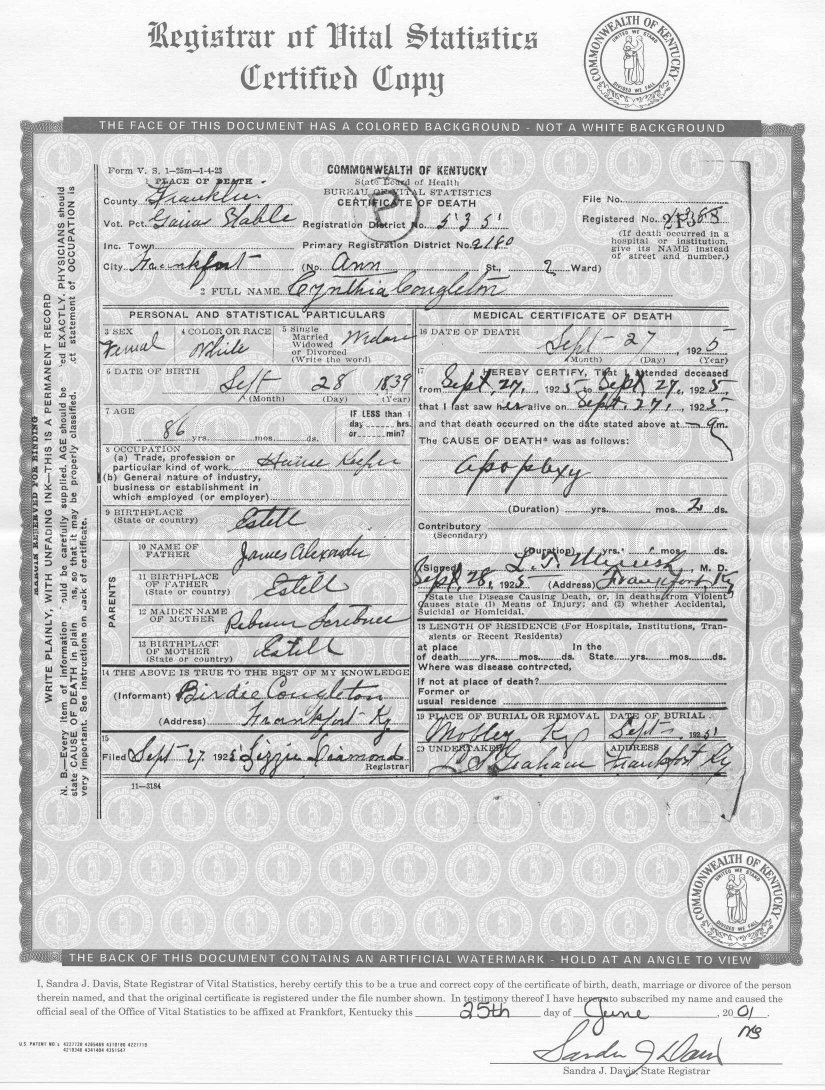 Registrar of Vital Statistics
Certified Copy
COMMONWEALTH OF KENTUCKY
UNITED WE STAND
DIVIDED WE FALL
THE FACE OF THIS DOCUMENT HAS A COLORED BACKGROUND - NOT A WHITE BACKGROUND
Form V. S. 1—25m—1-4-23
PLACE OF DEATH
County Franklin
Vot. Pct.
Inc. Town
City Frankfort
COMMONWEALTH OF KENTUCKY
State Board of Health
BUREAU OF VITAL STATISTICS
CERTIFICATE OF DEATH
Registration District No. 535
Primary Registration District No. 2160
(No. Ann St., 2 Ward)
File No.
Registered No.
(If death occurred in a
hospital or institution,
give its NAME instead
of street and number.)
2 FULL NAME Cynthia Congleton
PERSONAL AND STATISTICAL PARTICULARS
3 SEX
Femal
4 COLOR OR RACE
White
5 Single
Married
Widowed
or Divorced
(Write the word)
6 DATE OF BIRTH
Sept 28 1839
(Month) (Day) (Year)
7 AGE
86 yrs. mos. ds.
IF LESS than 1
day hrs.
or min?
8 OCCUPATION
(a) Trade, profession or
particular kind of work House Keeper
(b) General nature of industry,
business or establishment in
which employed (or employer)
9 BIRTHPLACE
(State or country) Estell
PARENTS
10 NAME OF
FATHER James Alexander
11 BIRTHPLACE
OF FATHER
(State or country) Estell
12 MAIDEN NAME
OF MOTHER Scribner
13 BIRTHPLACE
OF MOTHER
(State or country) Estell
14 THE ABOVE IS TRUE TO THE BEST OF MY KNOWLEDGE
(Informant) Birdie Congleton
(Address) Frankfort Ky
15
Filed Sept 27 1925 Lizzie Diamond
Registrar
11—3184
MEDICAL CERTIFICATE OF DEATH
16 DATE OF DEATH
Sept 27 1925
(Month) (Day) (Year)
17 I HEREBY CERTIFY, That I attended deceased
from Sept. 27, 1925 to Sept. 27, 1925,
that I last saw her alive on Sept. 27, 1925,
and that death occurred on the date stated above at m.
The CAUSE OF DEATH* was as follows:
Apoplexy
(Duration) yrs. mos. 2 ds.
Contributory
(Secondary)
(Duration) yrs. mos. ds.
(Signed) M. D.
Sept. 28, 1925 (Address) Frankfort, Ky
*State the Disease Causing Death, or, in deaths from Violent
Causes state (1) Means of Injury; and (2) whether Accidental,
Suicidal or Homicidal.
18 LENGTH OF RESIDENCE (For Hospitals, Institutions, Transients or Recent Residents)
at place In the
of death yrs. mos. ds. State yrs. mos. ds.
Where was disease contrected,
if not at place of death?
Former or
usual residence
19 PLACE OF BURIAL OR REMOVAL
Mobley Ky
DATE OF BURIAL
Sept 1925
20 UNDERTAKER
Graham
ADDRESS
Frankfort Ky
MARGIN RESERVED FOR BINDING
WRITE PLAINLY, WITH UNFADING INK—THIS IS A PERMANENT RECORD
N. B.—Every item of information should be carefully supplied. AGE should be ed EXACTLY. PHYSICIANS should
state CAUSE OF DEATH in plain ns, so that it may be properly classified. ct statement of OCCUPATION is
very important. See instructions on back of certificate.
COMMONWEALTH OF KENTUCKY
UNITED WE STAND
DIVIDED WE FALL
THE BACK OF THIS DOCUMENT CONTAINS AN ARTIFICIAL WATERMARK - HOLD AT AN ANGLE TO VIEW
I, Sandra J. Davis, State Registrar of Vital Statistics, hereby certify this to be a true and correct copy of the certificate of birth, death, marriage or divorce of the person
therein named, and that the original certificate is registered under the file number shown. In testimony thereof I have hereunto subscribed my name and caused the
official seal of the Office of Vital Statistics to be affixed at Frankfort, Kentucky this 25th day of June, 2001.
Sandra J Davis
Sandra J. Davis, State Registrar